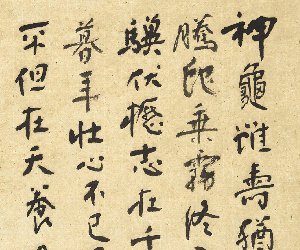 神龜雖壽猶
騰蛇乘霧終
驥伏櫪志在千
暮年壯心不已
不但在天養